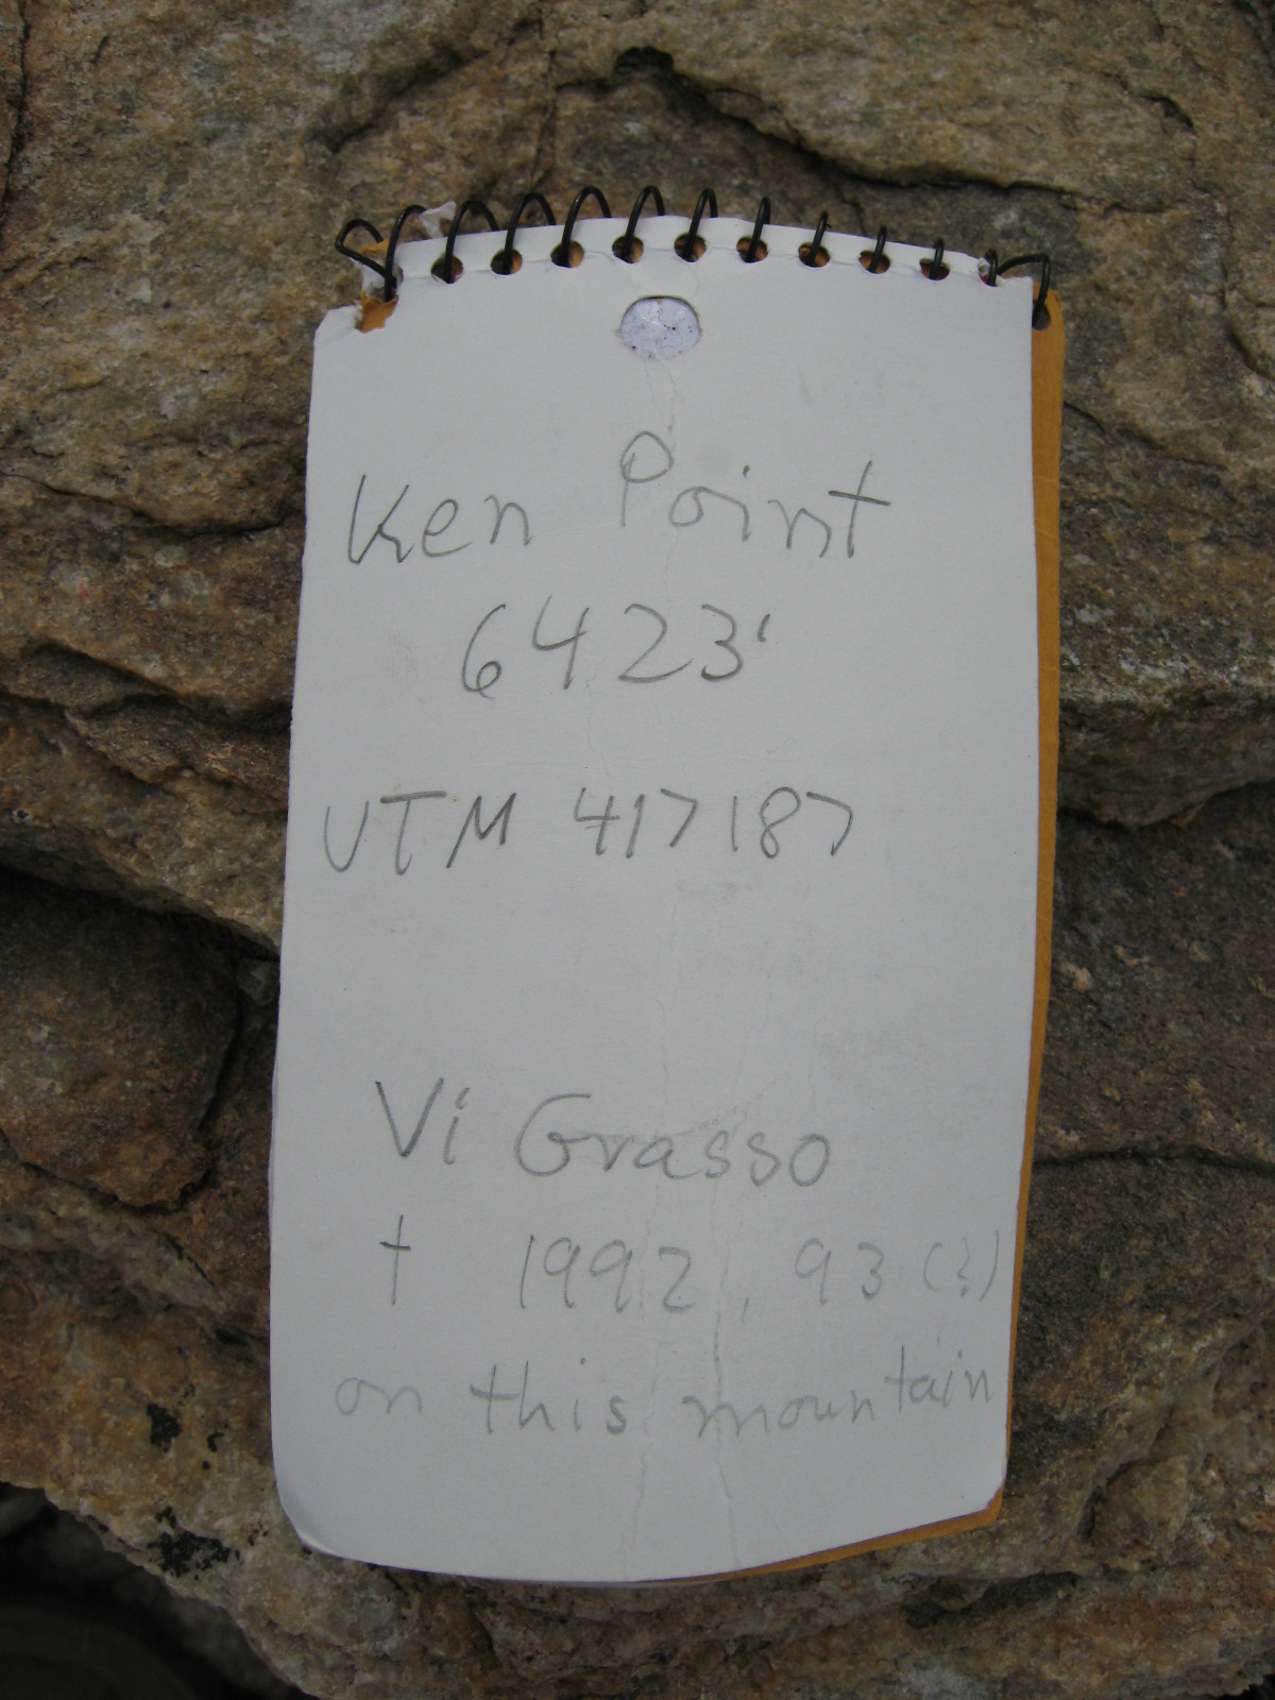 Ken Point
6423'
UTM 417187
Vi Grasso
† 1992, 93 (?)
on this mountain